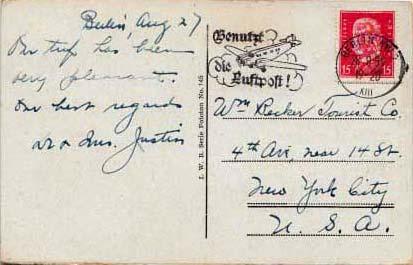 Berlin, Aug 27
Our trip has been
very pleasant.
Our best regards
Mr & Mrs. Justin
I. W. B. Serie Potsdam No. 145
Benutzt
die
Luftpost!
BERLIN
XIII
15 15
Wm Becker Tourist Co.
4th Ave, near 14 St.
New York City
U. S. A.